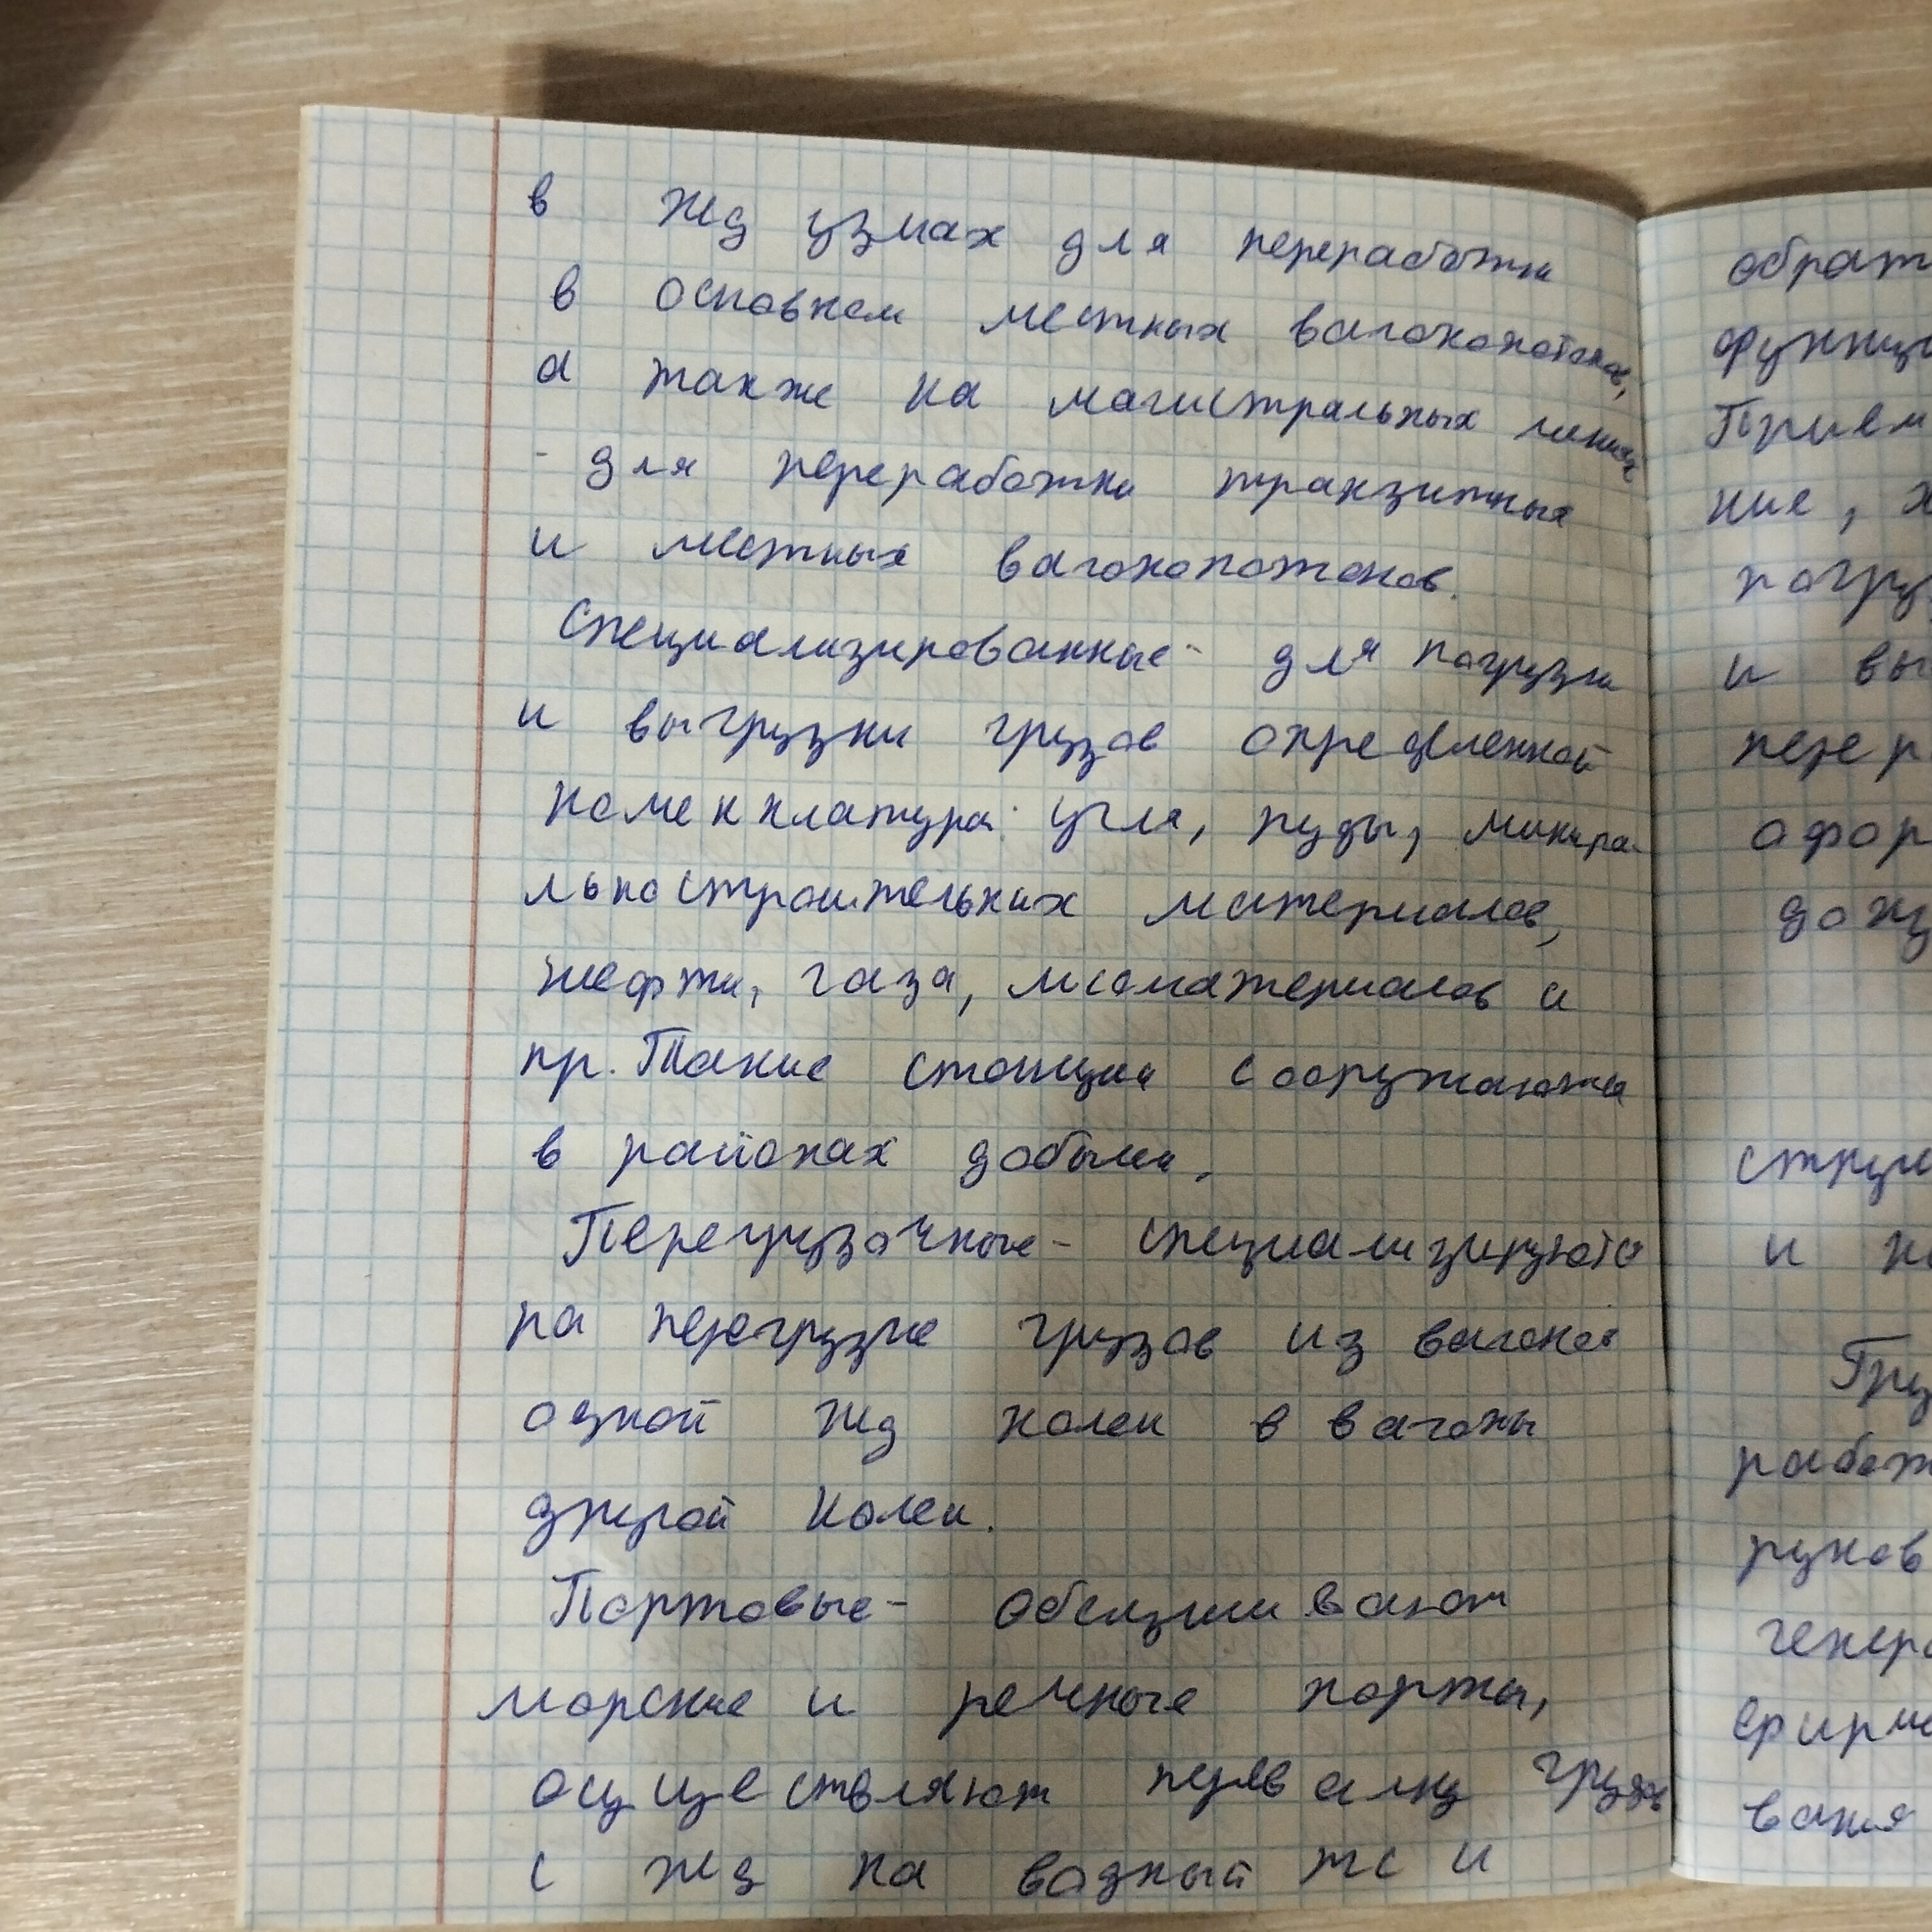 в жд узлах для переработки
в основном местных вагонопотоков,
а также на магистральных линиях
- для переработки транзитных
и местных вагонопотоков.
Специализированные - для погрузки
и выгрузки грузов определенной
номенклатура: угля, руды, минера-
льностроительных материалов,
нефти, газа, лесоматериалов и
пр. Такие станции сооружаются
в районах добычи.
Перегрузочные - специализируются
на перегрузке грузов из вагонов
одной жд колеи в вагоны
другой колеи.
Портовые - обслуживают
морские и речные порты,
осуществляют перевалку грузов
с жд на водный тс и
обрат
функци
Прием
ние, х
погру
и вы
пере р
офор
док
струк
и н
Груз
работ
руков
генер
ефирме
вания